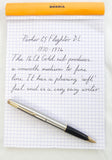 RHODIA
Parker 65 Flighter DL
1970-1976
The 14K Gold nib produces
a smooth medium to fine
line. It has a pleasing soft
feel and is a very easy writer